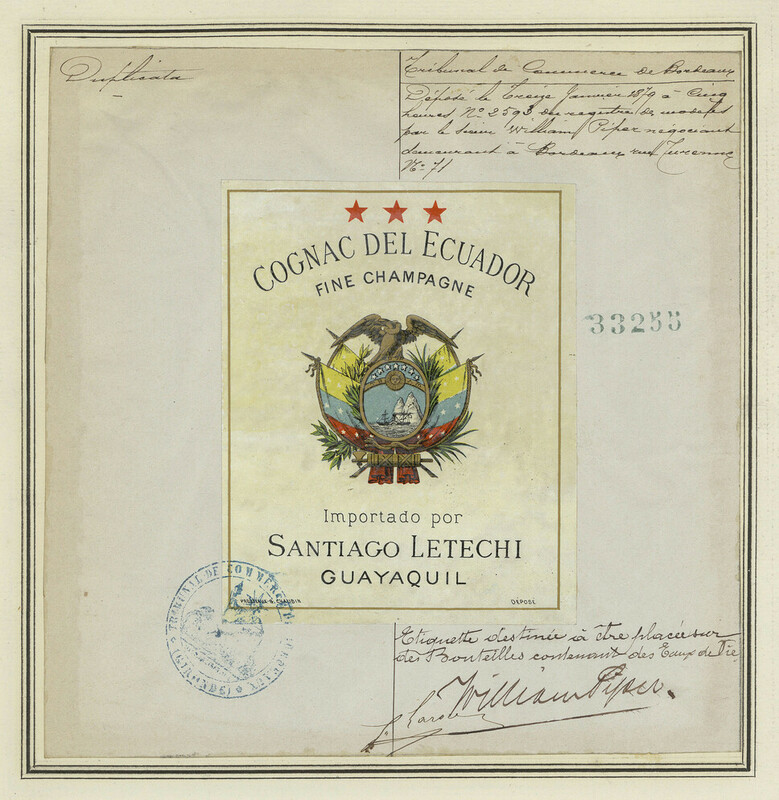 Duplicata
Tribunal de Commerce de Bordeaux
Déposé le Treize Janvier 1879 à Cinq
heures Nº 2593 du registre de modeles
par le sieur William Piper negociant
demeurant à Bordeaux rue Turenne
Nº 71
COGNAC DEL ECUADOR
FINE CHAMPAGNE
33255
Importado por
SANTIAGO LETECHI
GUAYAQUIL
DEPOSÉ
TRIBUNAL DE COMMERCE
BORDEAUX (GIRONDE)
Etiquette destinée à être placée sur
des Bouteilles contenant des Eaux de Vie
William Piper.